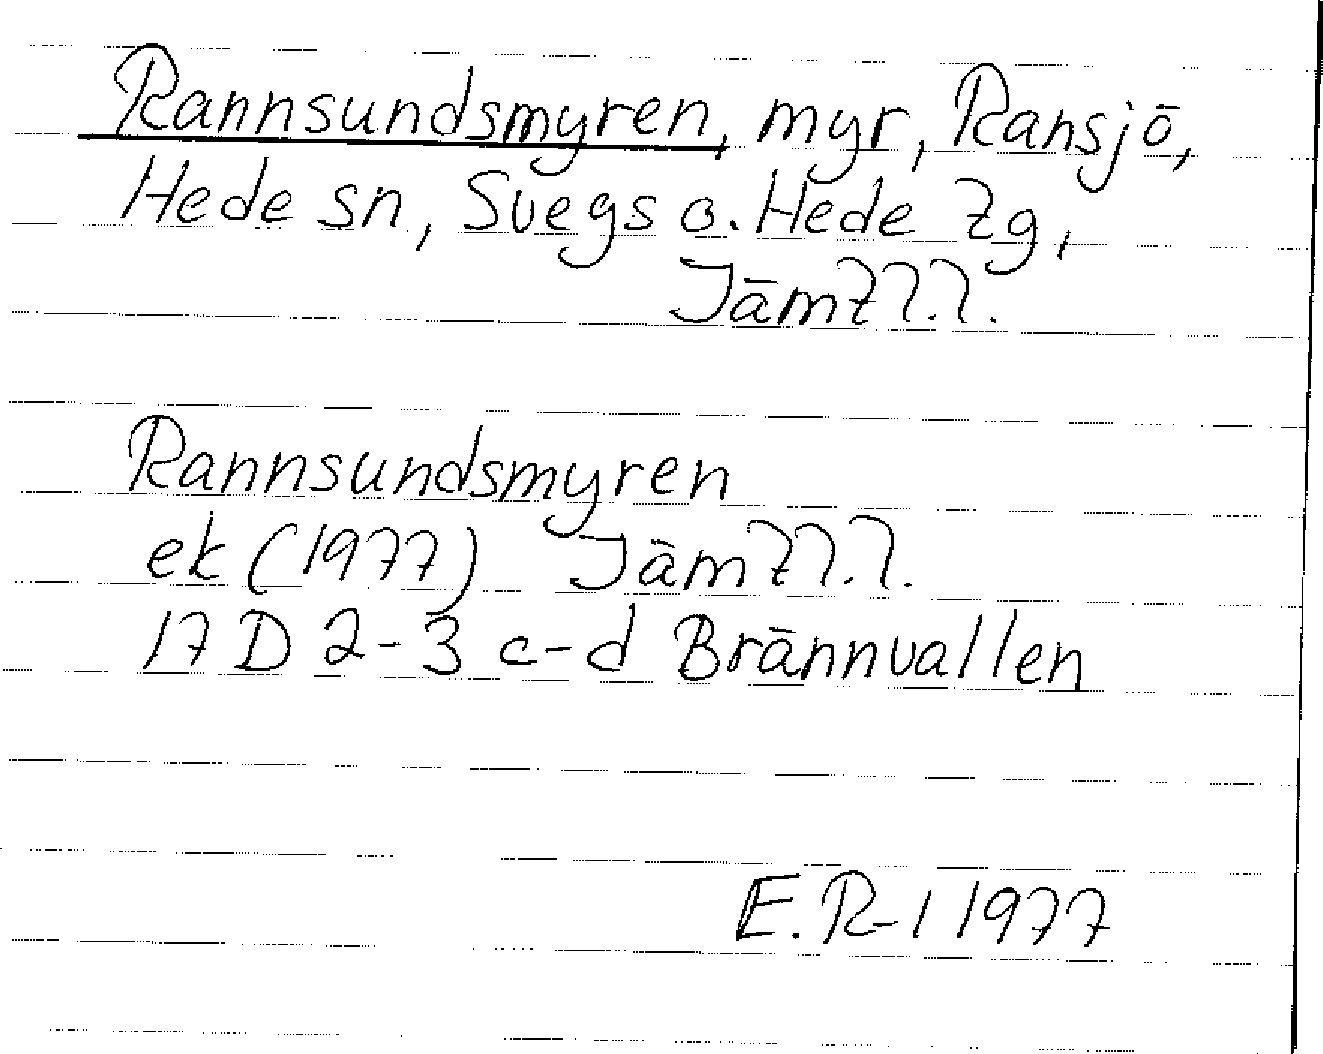 Rannsundsmyren, myr, Ransjö,
Hede sn, Svegs o. Hede tg,
Jämtl.l.
Rannsundsmyren
ek (1977) Jämtl.l.
17 D 2-3 c-d Brännvallen
E.R-l 1977